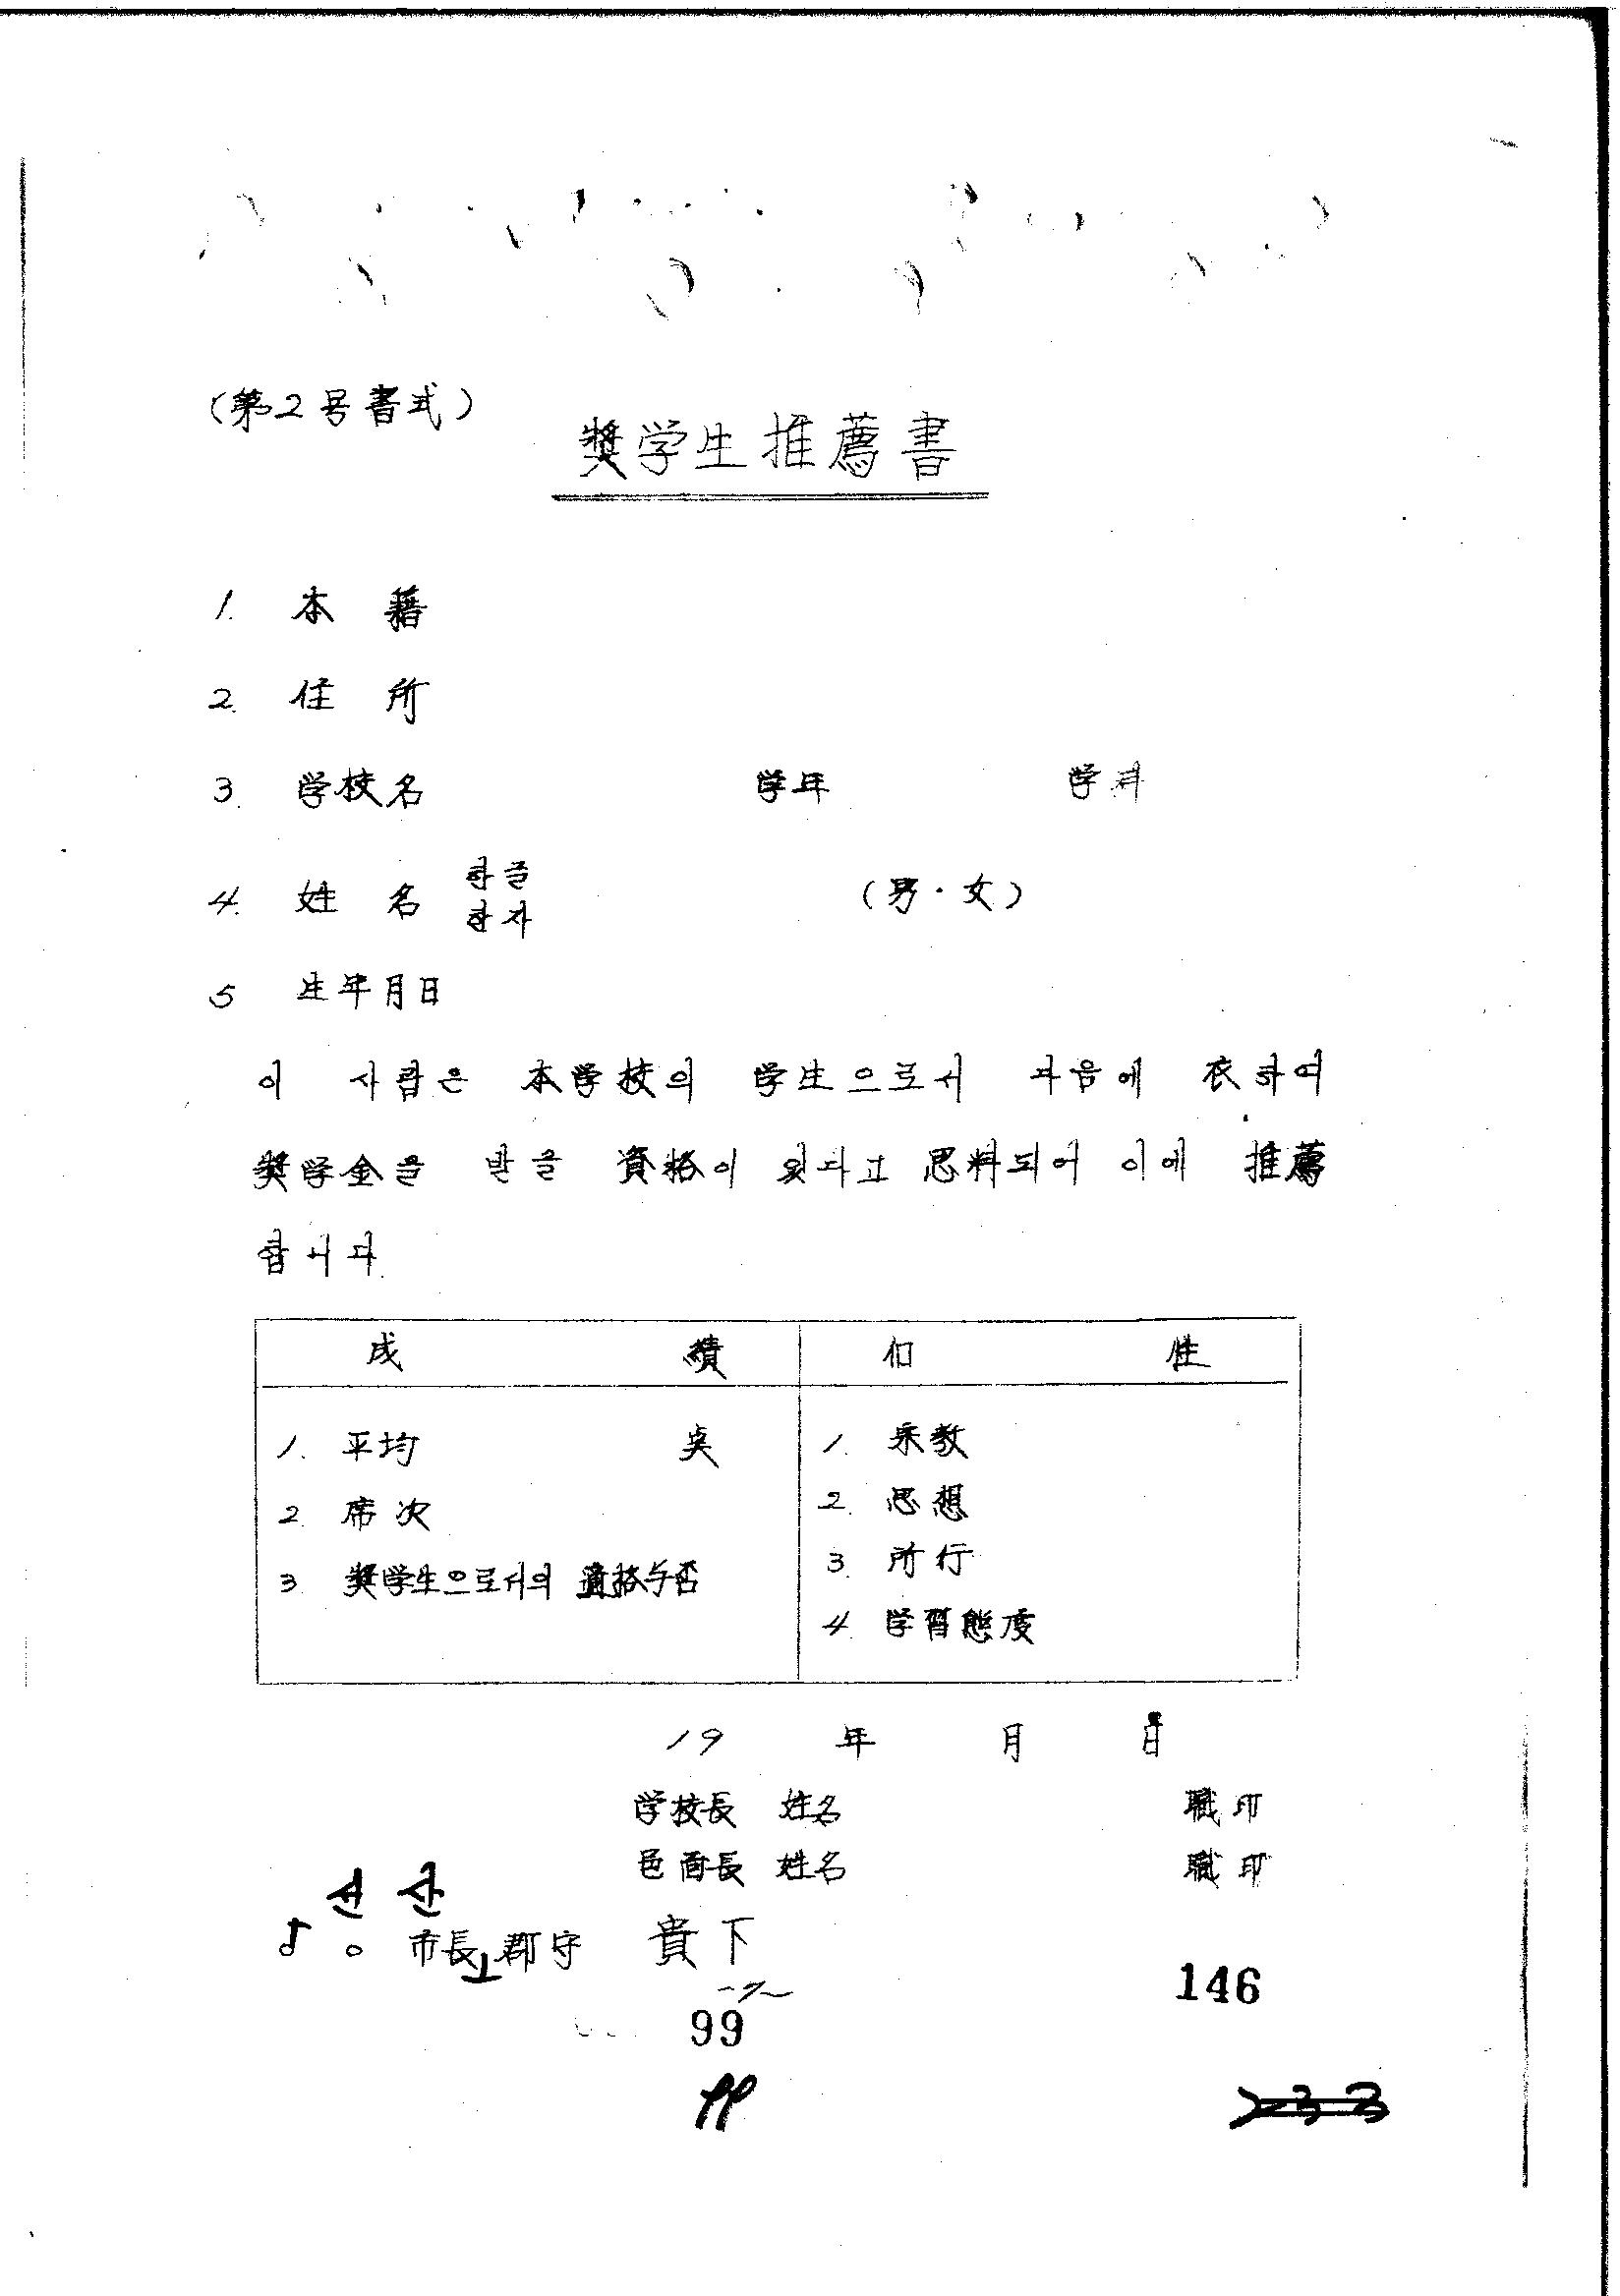 (第2号書式)
奬学生推薦書
1. 本 籍
2. 住 所
3. 学校名 学年 学科
4. 姓 名 한글 (男·女)
한자
5 生年月日
이 사람은 本学校의 学生으로서 다음에 衣하여
奬学金을 받을 資格이 있다고 思料되어 이에 推薦
합니다.
成 績 個 性
1. 平均 点 1. 宗教
2. 席次 2. 思想
3 奬学生으로서의 適格与否 3. 所行
4. 学習態度
19 年 月 日
学校長 姓名 職印
邑面長 姓名 職印
선산
市長 郡守 貴下
146
99
233